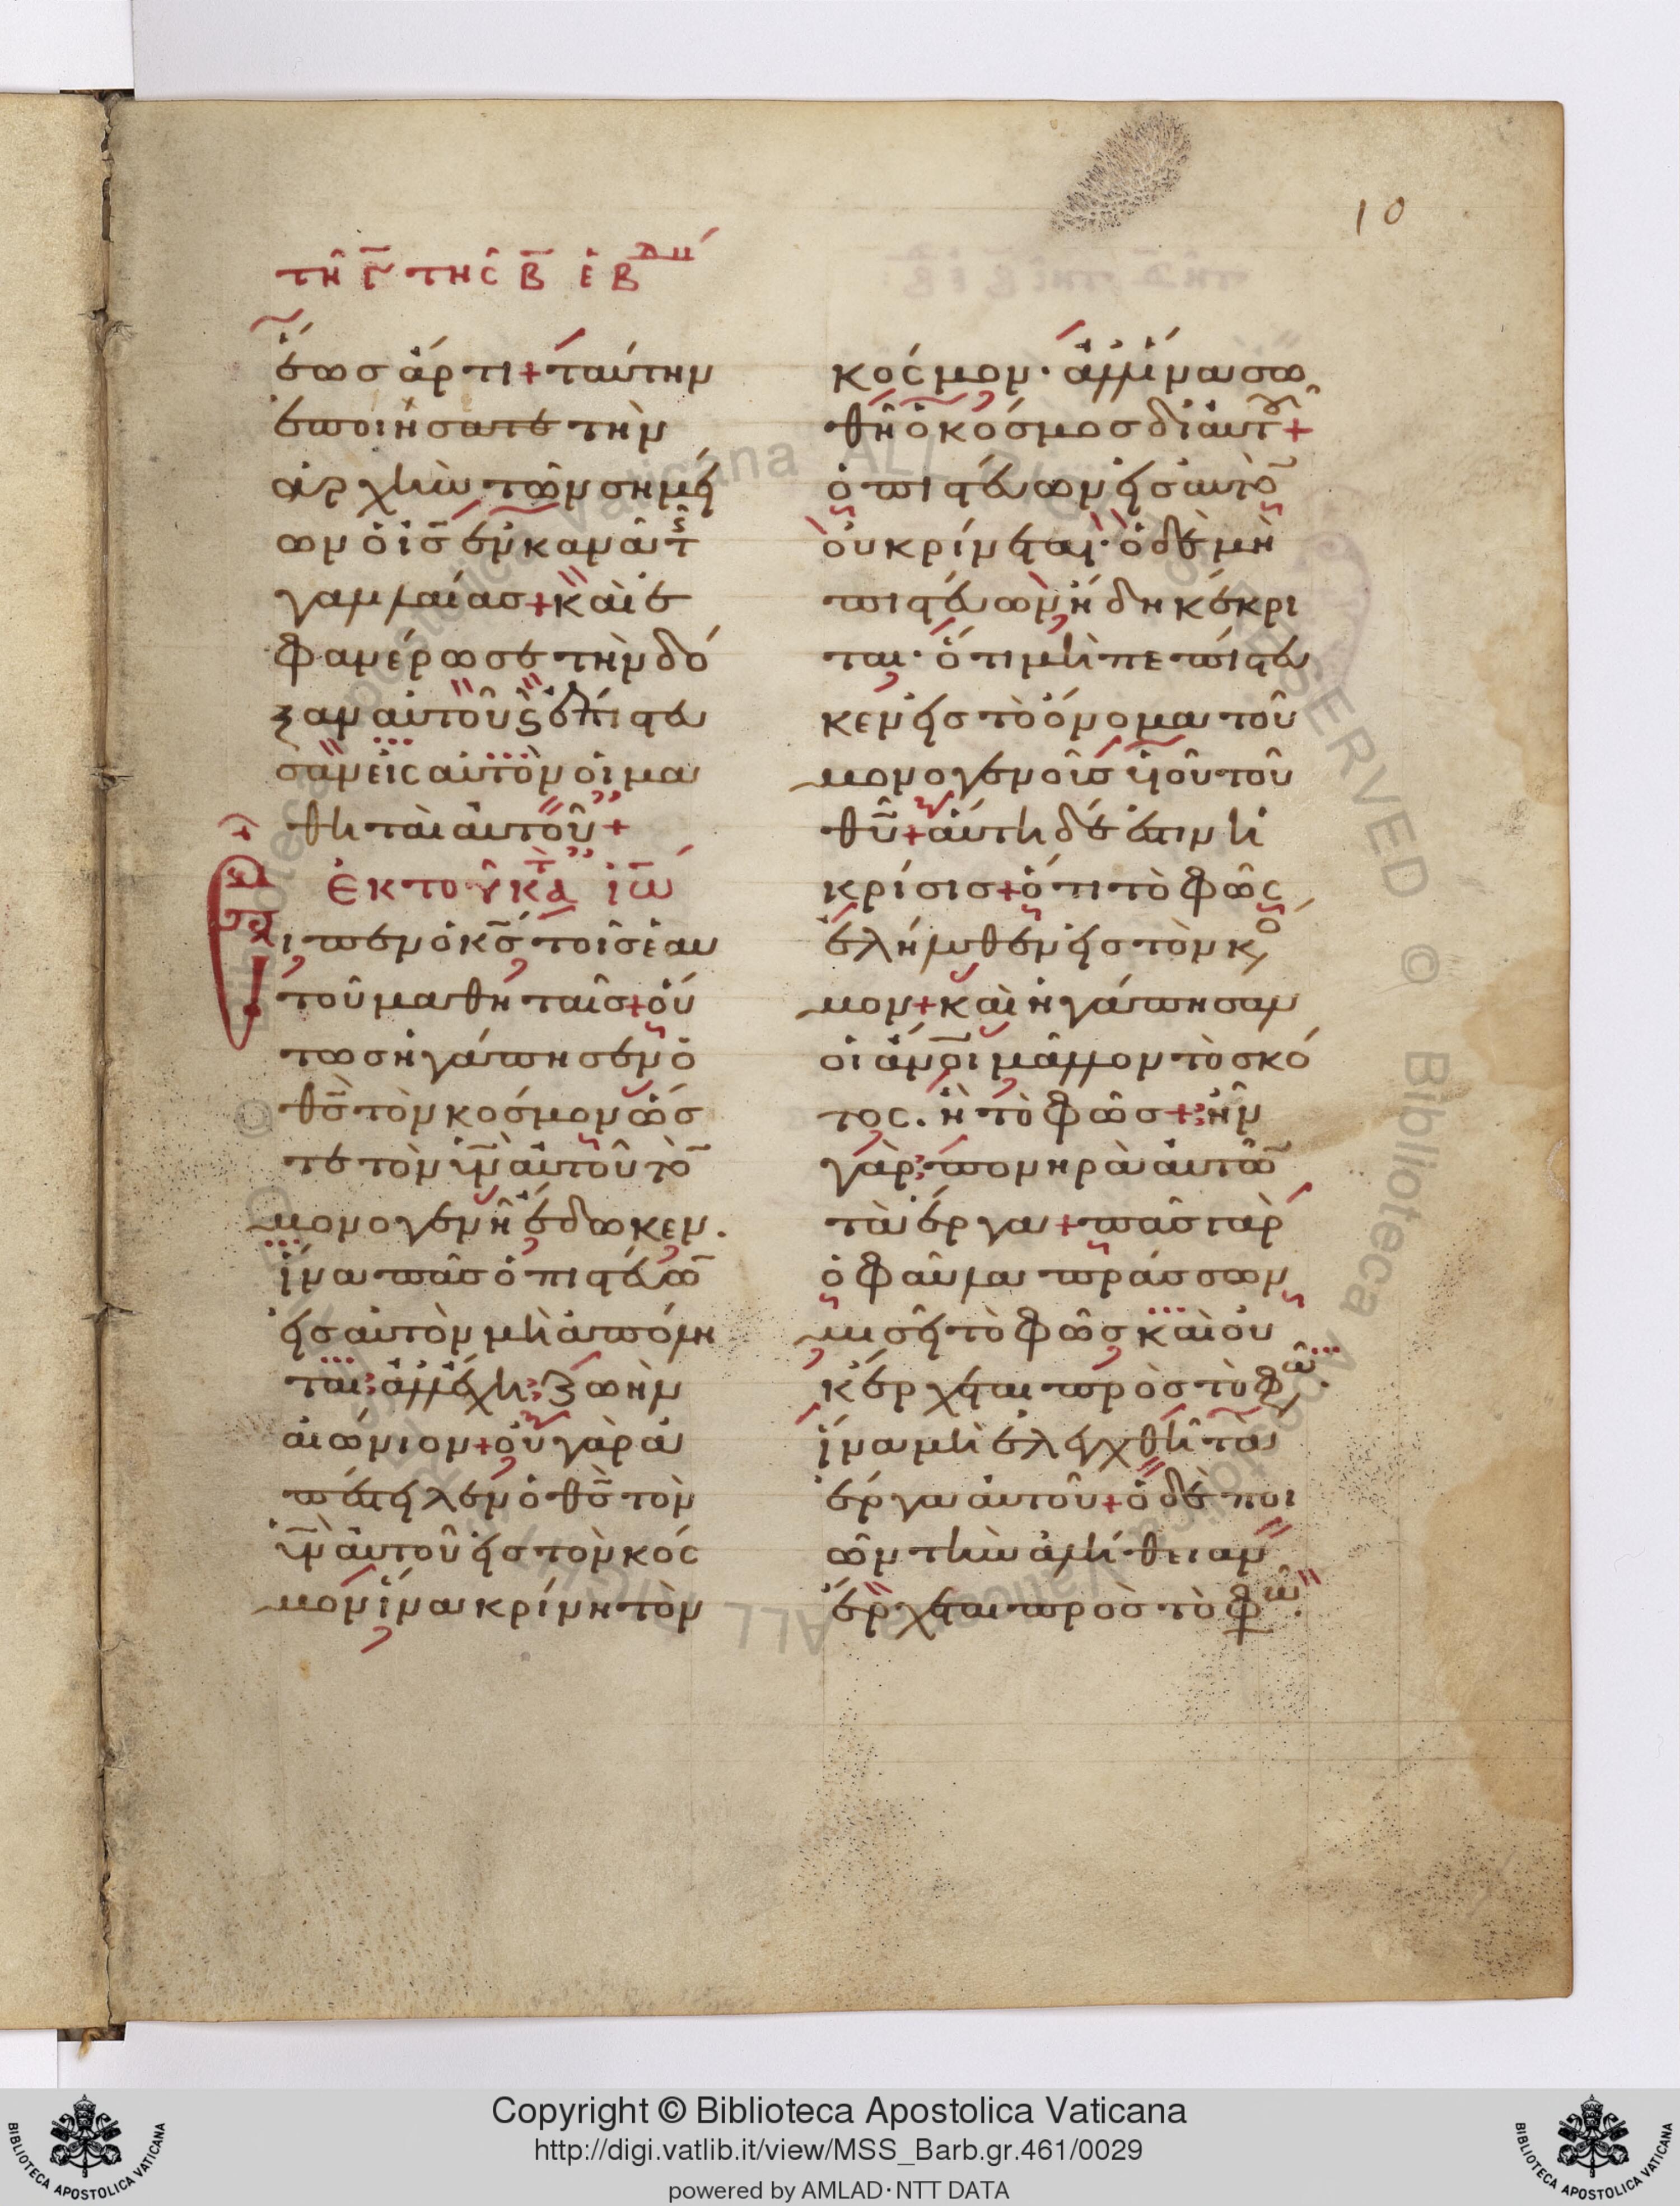 10
τῆ γ̅ τῆς β̅ ἑβδ
ἕως ἄρτι + ταύτην
ἐποίησατε τὴν
ἀρχὴν τῶν σημεί
ων ὁ ι̅ς̅ ἐν κανᾶ τ̅
γαλιλαίας + καὶ ἐ
φανέρωσε τὴν δό
ξαν αὐτοῦ ϛ ἐπίστευ
σαν εἰς αὐτὸν οἱ μα
θηταὶ αὐτοῦ +
ἐκ τοῦ κατὰ ἰω̅
ιπεν ὁ κ̅ς̅ τοῖς ἑαυ
τοῦ μαθηταῖς + οὕ
τως ἠγάπησεν ὁ
θ̅ς̅ τὸν κόσμον ὥσ
τε τὸν υ̅ν̅ αὐτοῦ τὸ̅
μονογενῆ ἔδωκεν.
ἵνα πᾶς ὁ πιστεύω̅
εἰς αὐτὸν μὴ ἀπόλη
ται· ἀλλ' ἔχη· ζωὴν
αἰώνιον + οὐ γὰρ ἀ
πέστειλεν ὁ θ̅ς̅ τὸν
υ̅ν̅ αὐτοῦ εἰς τὸν κόσ
μον ἵνα κρίνη τὸν
κόσμον· ἀλλ' ἵνα σω
θῆ ὁ κόσμος δι' αὐτ̅ +
ὁ πιστεύων εἰς αὐτὸ̅
οὐ κρίνεται· ὁ δὲ μὴ
πιστεύων ἤδη κέκρι
ται· ὅτι μὴ πεπίστευ
κεν εἰς τὸ ὄνομα τοῦ
μονογενοῦς υἱοῦ τοῦ
θ̅υ̅ + αὕτη δέ ἐστιν ἡ
κρίσις + ὅτι τὸ φῶς
ἐλήλυθεν εἰς τὸν κό
μον + καὶ ἠγάπησαν
οἱ ἄν̅ο̅ι μᾶλλον τὸ σκό
τος. ἢ τὸ φῶς + ἦν
γὰρ· πονηρὰ αὐτῶ̅
τὰ ἔργα + πᾶς γὰρ
ὁ φαῦλα πράσσων
μισεῖ τὸ φῶς καὶ οὐ
κ ἔρχεται πρὸς τὸ φῶ.
ἵνα μὴ ἐλεγχθῆ τὰ
ἔργα αὐτοῦ + ὁ δὲ ποι
ῶν τὴν ἀλήθειαν
ἔρχεται πρὸς τὸ φῶ.
Copyright © Biblioteca Apostolica Vaticana
http://digi.vatlib.it/view/MSS_Barb.gr.461/0029
powered by AMLAD·NTT DATA
BIBLIOTECA APOSTOLICA VATICANA
BIBLIOTECA APOSTOLICA VATICANA